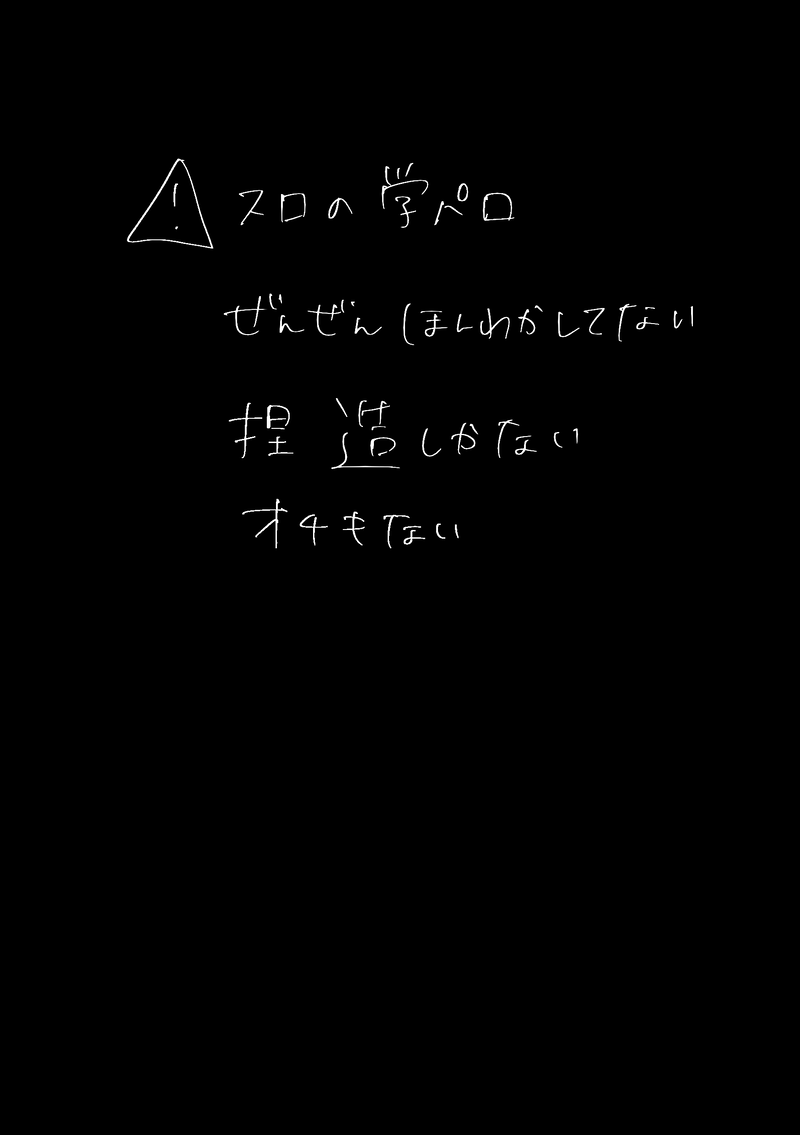 ! スロの学ペロ
ぜんぜんほんわかしてない
捏造しかない
オチもない